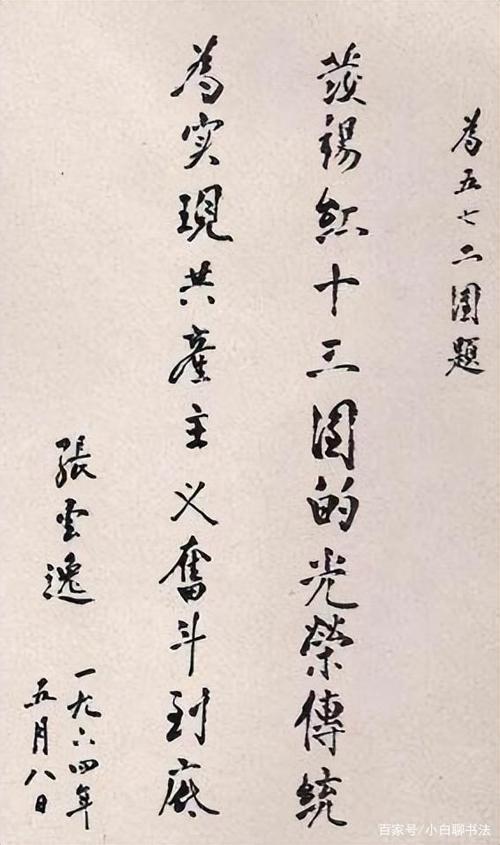 為五七二團題
發揚紅十三團的光榮傳統
為实現共產主义奮斗到底
張雲逸
一九六四年
五月八日
百家号/小白聊书法